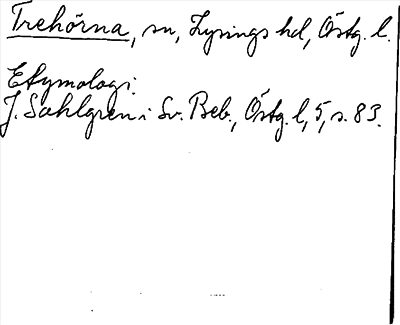 Trehörna, sn, Lysings hd, Östg. l.
Etymologi:
J. Sahlgren i Sv. Beb., Östg. l, 5, s. 83.